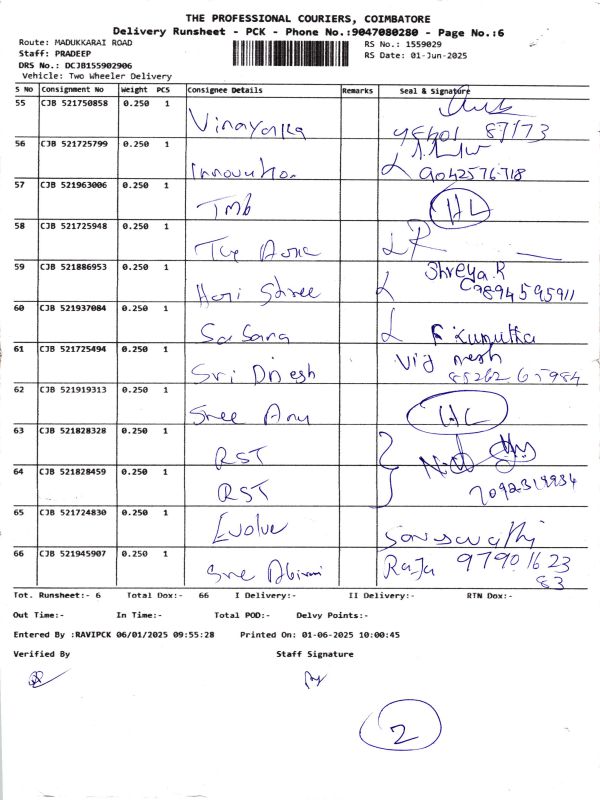 THE PROFESSIONAL COURIERS, COIMBATORE
Delivery Runsheet - PCK - Phone No.:9047080280 - Page No.:6
Route: MADUKKARAI ROAD
RS No.: 1559029
Staff: PRADEEP
RS Date: 01-Jun-2025
DRS No.: DCJB155902906
Vehicle: Two Wheeler Delivery
S No Consignment No Weight PCS Consignee Details Remarks Seal & Signature
55 CJB 521750858 0.250 1 Vinayaka
56 CJB 521725799 0.250 1 Innovation 9042576718
57 CJB 521963006 0.250 1 TMB
58 CJB 521725948 0.250 1
59 CJB 521886953 0.250 1 Hari Shree Shreya.R 7894595911
60 CJB 521937084 0.250 1 Sa Sang
61 CJB 521725494 0.250 1 Sri Dinesh
62 CJB 521919313 0.250 1 Sree Anu
63 CJB 521828328 0.250 1 RST
64 CJB 521828459 0.250 1 RST
65 CJB 521724830 0.250 1 Evolve Saraswathi
66 CJB 521945907 0.250 1 Sree Abirami Raja 97901623
83
Tot. Runsheet:- 6 Total Dox:- 66 I Delivery:- II Delivery:- RTN Dox:-
Out Time:- In Time:- Total POD:- Delvy Points:-
Entered By :RAVIPCK 06/01/2025 09:55:28 Printed On: 01-06-2025 10:00:45
Verified By Staff Signature
2